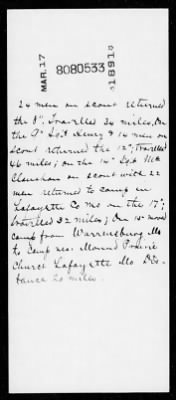 MAR. 17
8080533
1891
24 men on scout returned
the 8", Travelled 34 miles. On
the 9" Sgt Henry & 14 men on
scout returned the 12", travelled
46 miles; on the 14" Sgt Mc
Clanahan on scout with 22
men returned to camp in
Lafayette Co Mo on the 17";
travelled 32 miles; On 15 moved
camp from Warrensburg Mo
to Camp near Mound Prairie
Church Lafayette Mo Dis-
tance 20 miles.